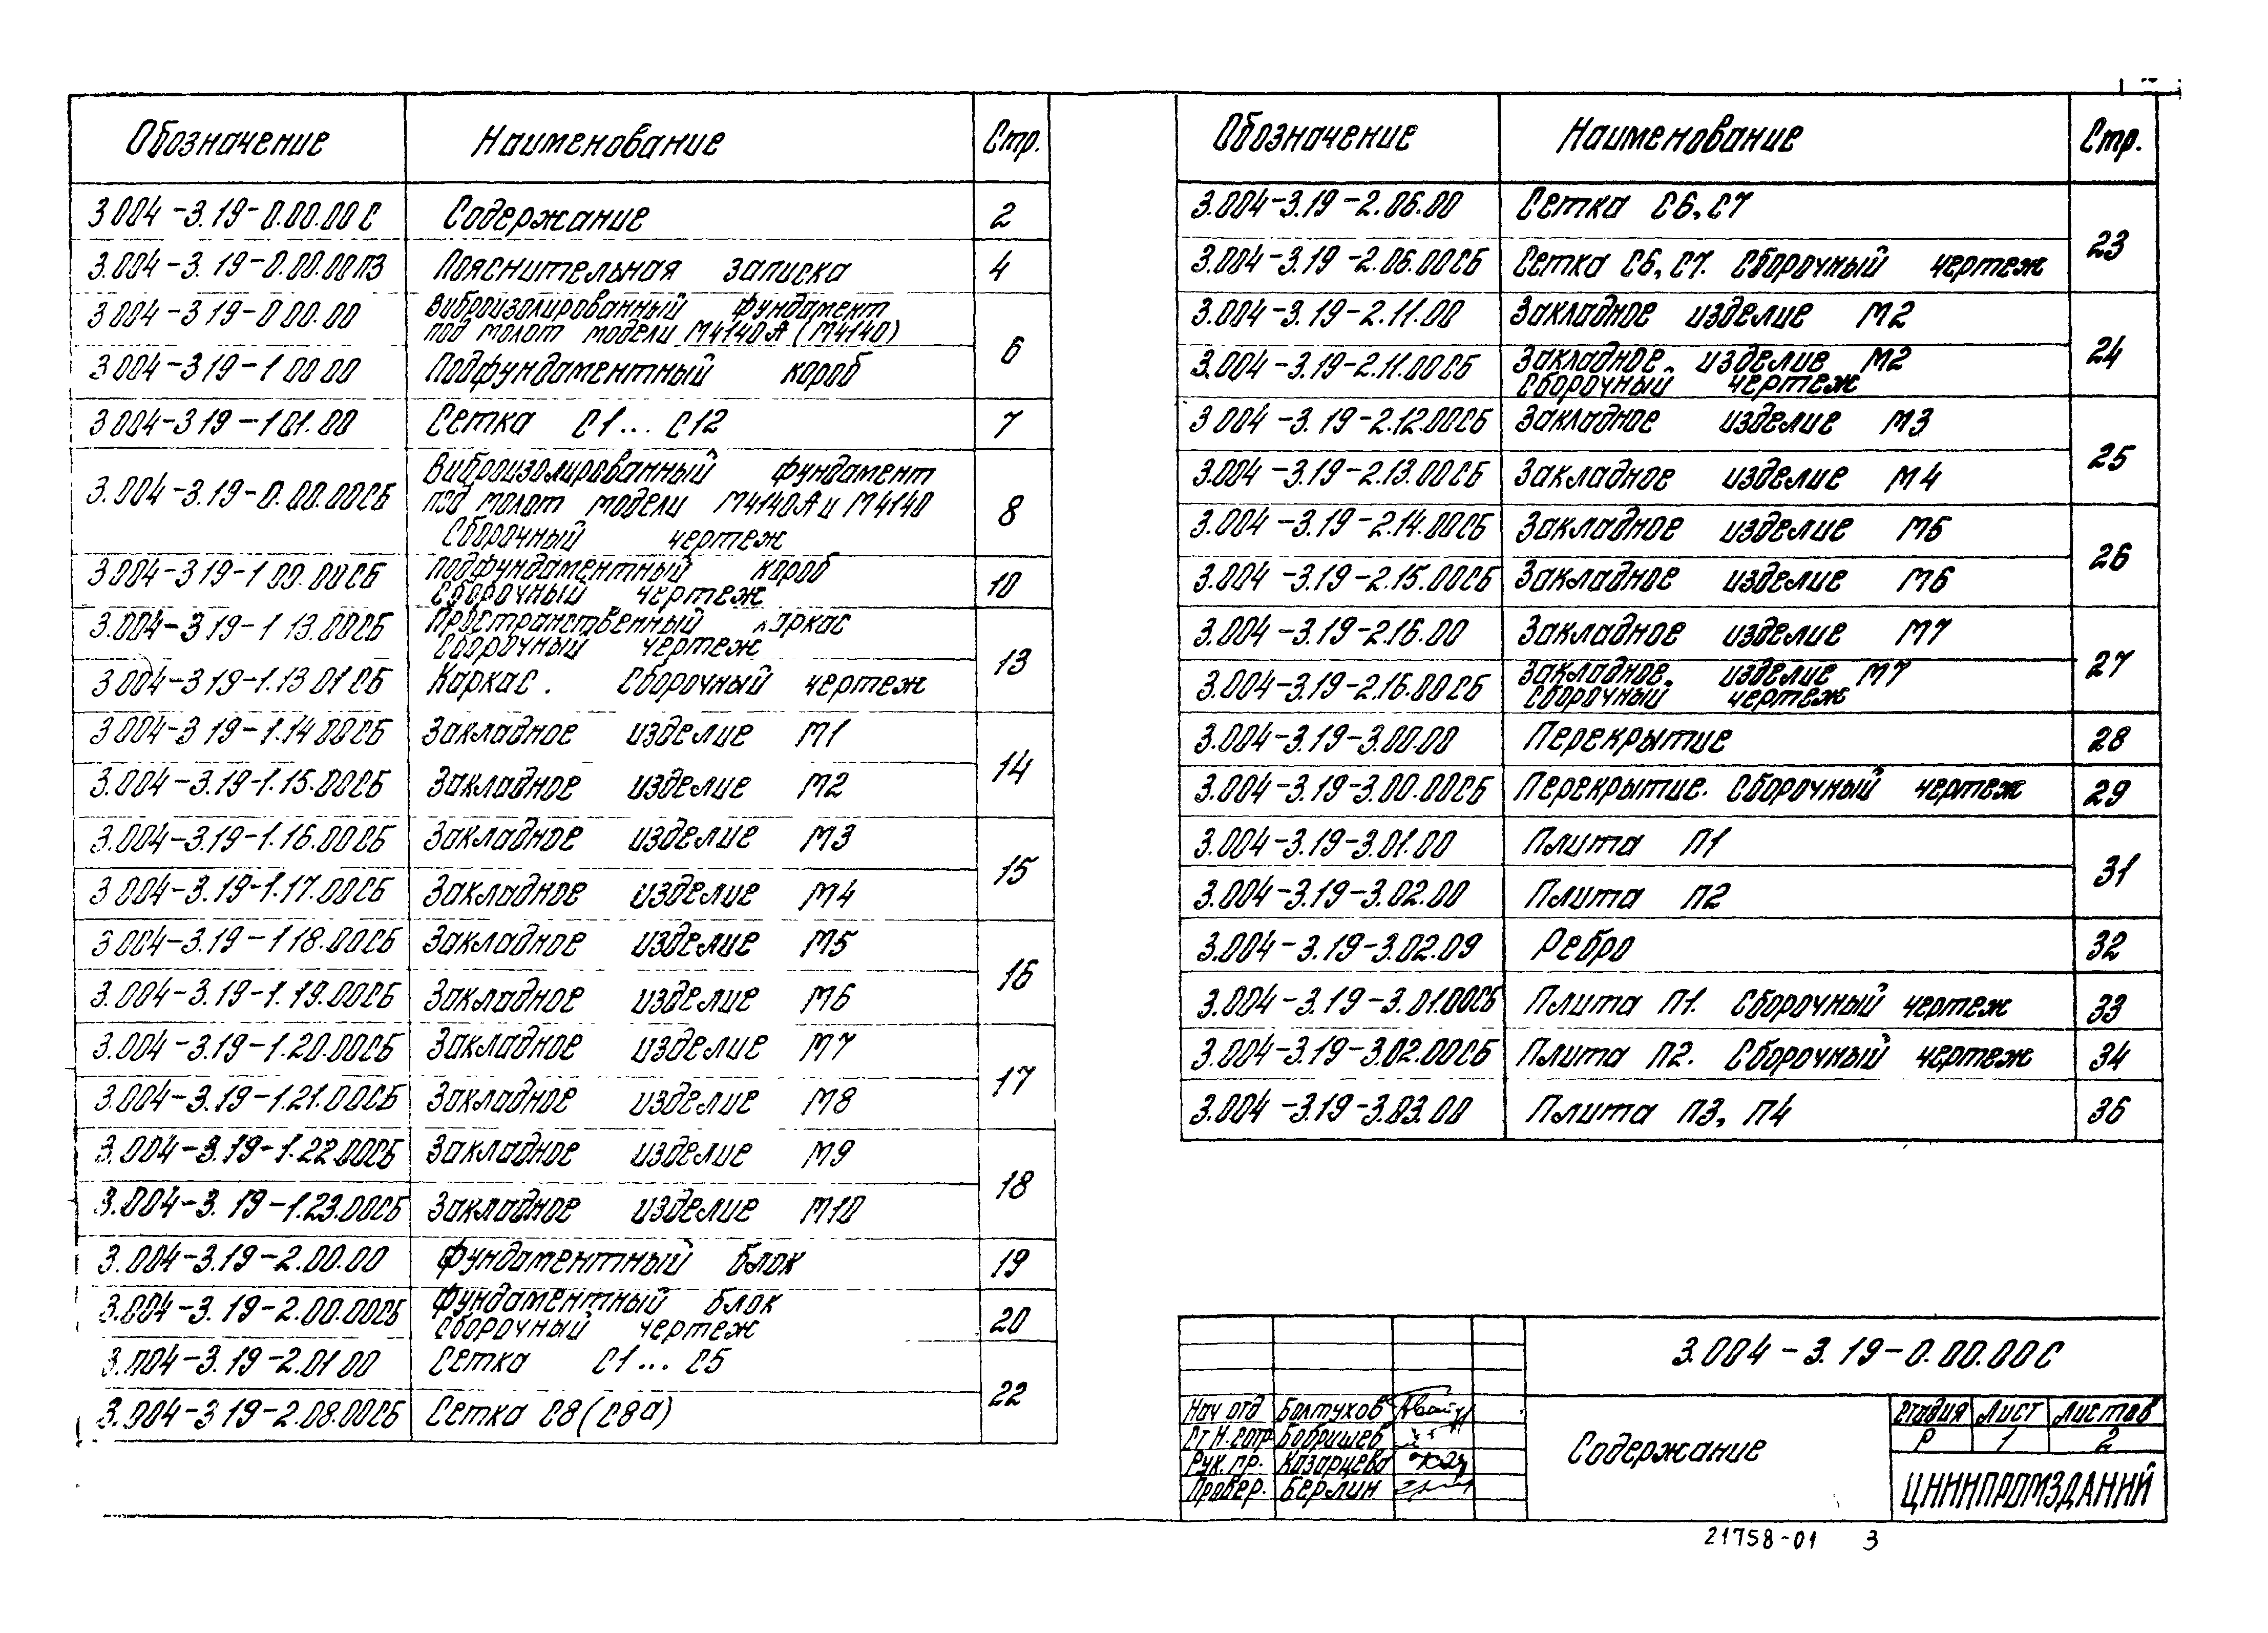 Обозначение Наименование Стр.
3.004-3.19-0.00.00 С Содержание 2
3.004-3.19-0.00.00ПЗ Пояснительная записка 4
3 004-3 19-0 00.00 Виброизолированный фундамент
под молот модели М4140А (М4140) 6
3 004-3 19-1 00 00 Подфундаментный короб
3 004-3 19-1 01.00 Сетка С1...С12 7
3.004-3.19-0.00.00СБ Виброизолированный фундамент
под молот модели М4140А и М4140
Сборочный чертеж 8
3 004-3 19-1 00.00СБ Подфундаментный короб
Сборочный чертеж 10
3.004-3 19-1 13.00СБ Пространственный каркас
Сборочный чертеж 13
3 004-3 19-1.13 01 СБ Каркас. Сборочный чертеж
3 004-3 19-1.14 00СБ Закладное изделие М1 14
3.004-3.19-1.15.00СБ Закладное изделие М2
3.004-3.19-1.16.00СБ Закладное изделие М3 15
3 004-3.19-1.17.00СБ Закладное изделие М4
3 004-3.19-1 18.00СБ Закладное изделие М5 16
3.004-3.19-1.19.00СБ Закладное изделие М6
3.004-3.19-1.20.00СБ Закладное изделие М7 17
3.004-3.19-1.21.00СБ Закладное изделие М8
3.004-3.19-1.22.00СБ Закладное изделие М9 18
3.004-3.19-1.23.00СБ Закладное изделие М10
3.004-3.19-2.00.00 Фундаментный блок 19
3.004-3.19-2.00.00СБ Фундаментный блок
Сборочный чертеж 20
3.004-3.19-2.01 00 Сетка С1...С5 22
3.004-3 19-2.08.00СБ Сетка С8(С8а)
Обозначение Наименование Стр.
3.004-3.19-2.06.00 Сетка С6,С7 23
3.004-3.19-2.06.00СБ Сетка С6,С7. Сборочный чертеж
3.004-3.19-2.11.00 Закладное изделие М2 24
3.004-3.19-2.11.00СБ Закладное изделие М2
Сборочный чертеж
3 004-3.19-2.12.00СБ Закладное изделие М3 25
3.004-3.19-2.13.00СБ Закладное изделие М4
3.004-3.19-2.14.00СБ Закладное изделие М5 26
3.004-3.19-2.15.00СБ Закладное изделие М6
3.004-3.19-2.16.00 Закладное изделие М7 27
3.004-3.19-2.16.00СБ Закладное. изделие М7
Сборочный чертеж
3.004-3.19-3.00.00 Перекрытие 28
3.004-3.19-3.00.00СБ Перекрытие. Сборочный чертеж 29
3.004-3.19-3.01.00 Плита П1 31
3.004-3.19-3.02.00 Плита П2
3.004-3.19-3.02.09 Ребро 32
3.004-3.19-3.01.00СБ Плита П1. Сборочный чертеж 33
3.004-3.19-3.02.00СБ Плита П2. Сборочный чертеж 34
3.004-3.19-3.03.00 Плита П3, П4 36
3.004-3.19-0.00.00С
Нач отд Болтухов
Ст Н.сотр Бобришев
Рук. пр. Казарцева
Провер. Берлин
Содержание
Стадия Лист Листов
Р 1 2
ЦНИИПРОМЗДАНИЙ
21758-01 3